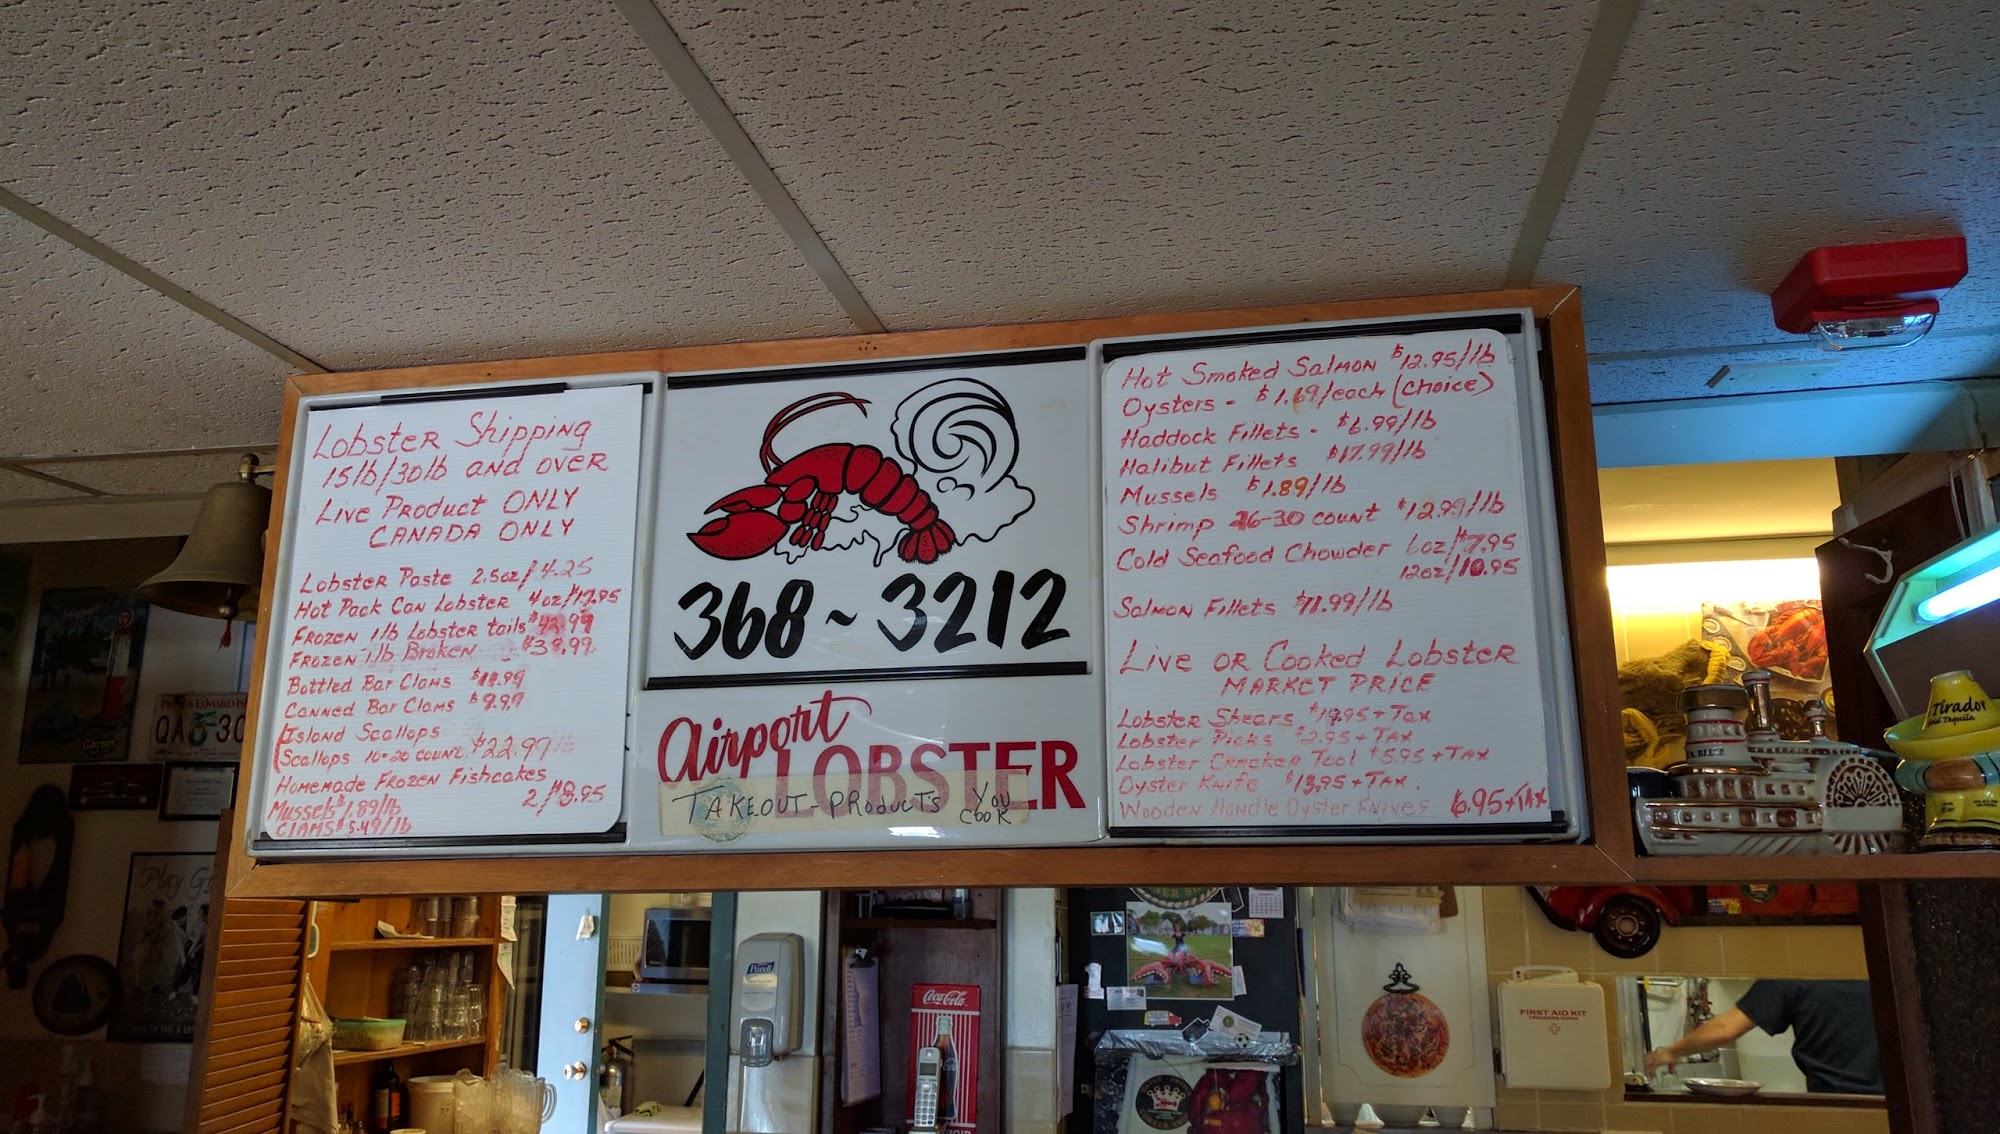 Lobster Shipping
15lb/30lb and over
Live Product ONLY
CANADA ONLY
Lobster Paste 2.5oz/4.25
Hot Pack Can Lobster 4oz/$17.95
Frozen 1lb Lobster tails $42.99
Frozen 1lb Broken $38.99
Bottled Bar Clams
Canned Bar Clams $9.99
Island Scallops
Scallops 10-20 count. $22.99/lb
Homemade Frozen Fishcakes
2/$3.95
Mussels $1.89/lb
CLAMS $5.49/lb
368~3212
Airport
LOBSTER
TAKEOUT-PRODUCTS YOU
COOK
Hot Smoked Salmon $12.95/lb
Oysters - $1.69/each (choice)
Haddock Fillets - $6.99/lb
Halibut Fillets $17.99/lb
Mussels $1.89/lb
Shrimp 26-30 count $12.99/lb
Cold Seafood Chowder 6oz/$7.95
12oz/10.95
Salmon Fillets $11.99/lb
Live or Cooked Lobster
MARKET PRICE
Lobster Shears $19.95+Tax
Lobster Picks $2.95+Tax
Lobster Cracker Tool $5.95+TAX
Oyster Knife $13.95+TAX.
Wooden Handle Oyster Knives 6.95+TAX
Tirador
Gold Tequila
QA 30
Play G
Purell
Coca-Cola
FIRST AID KIT